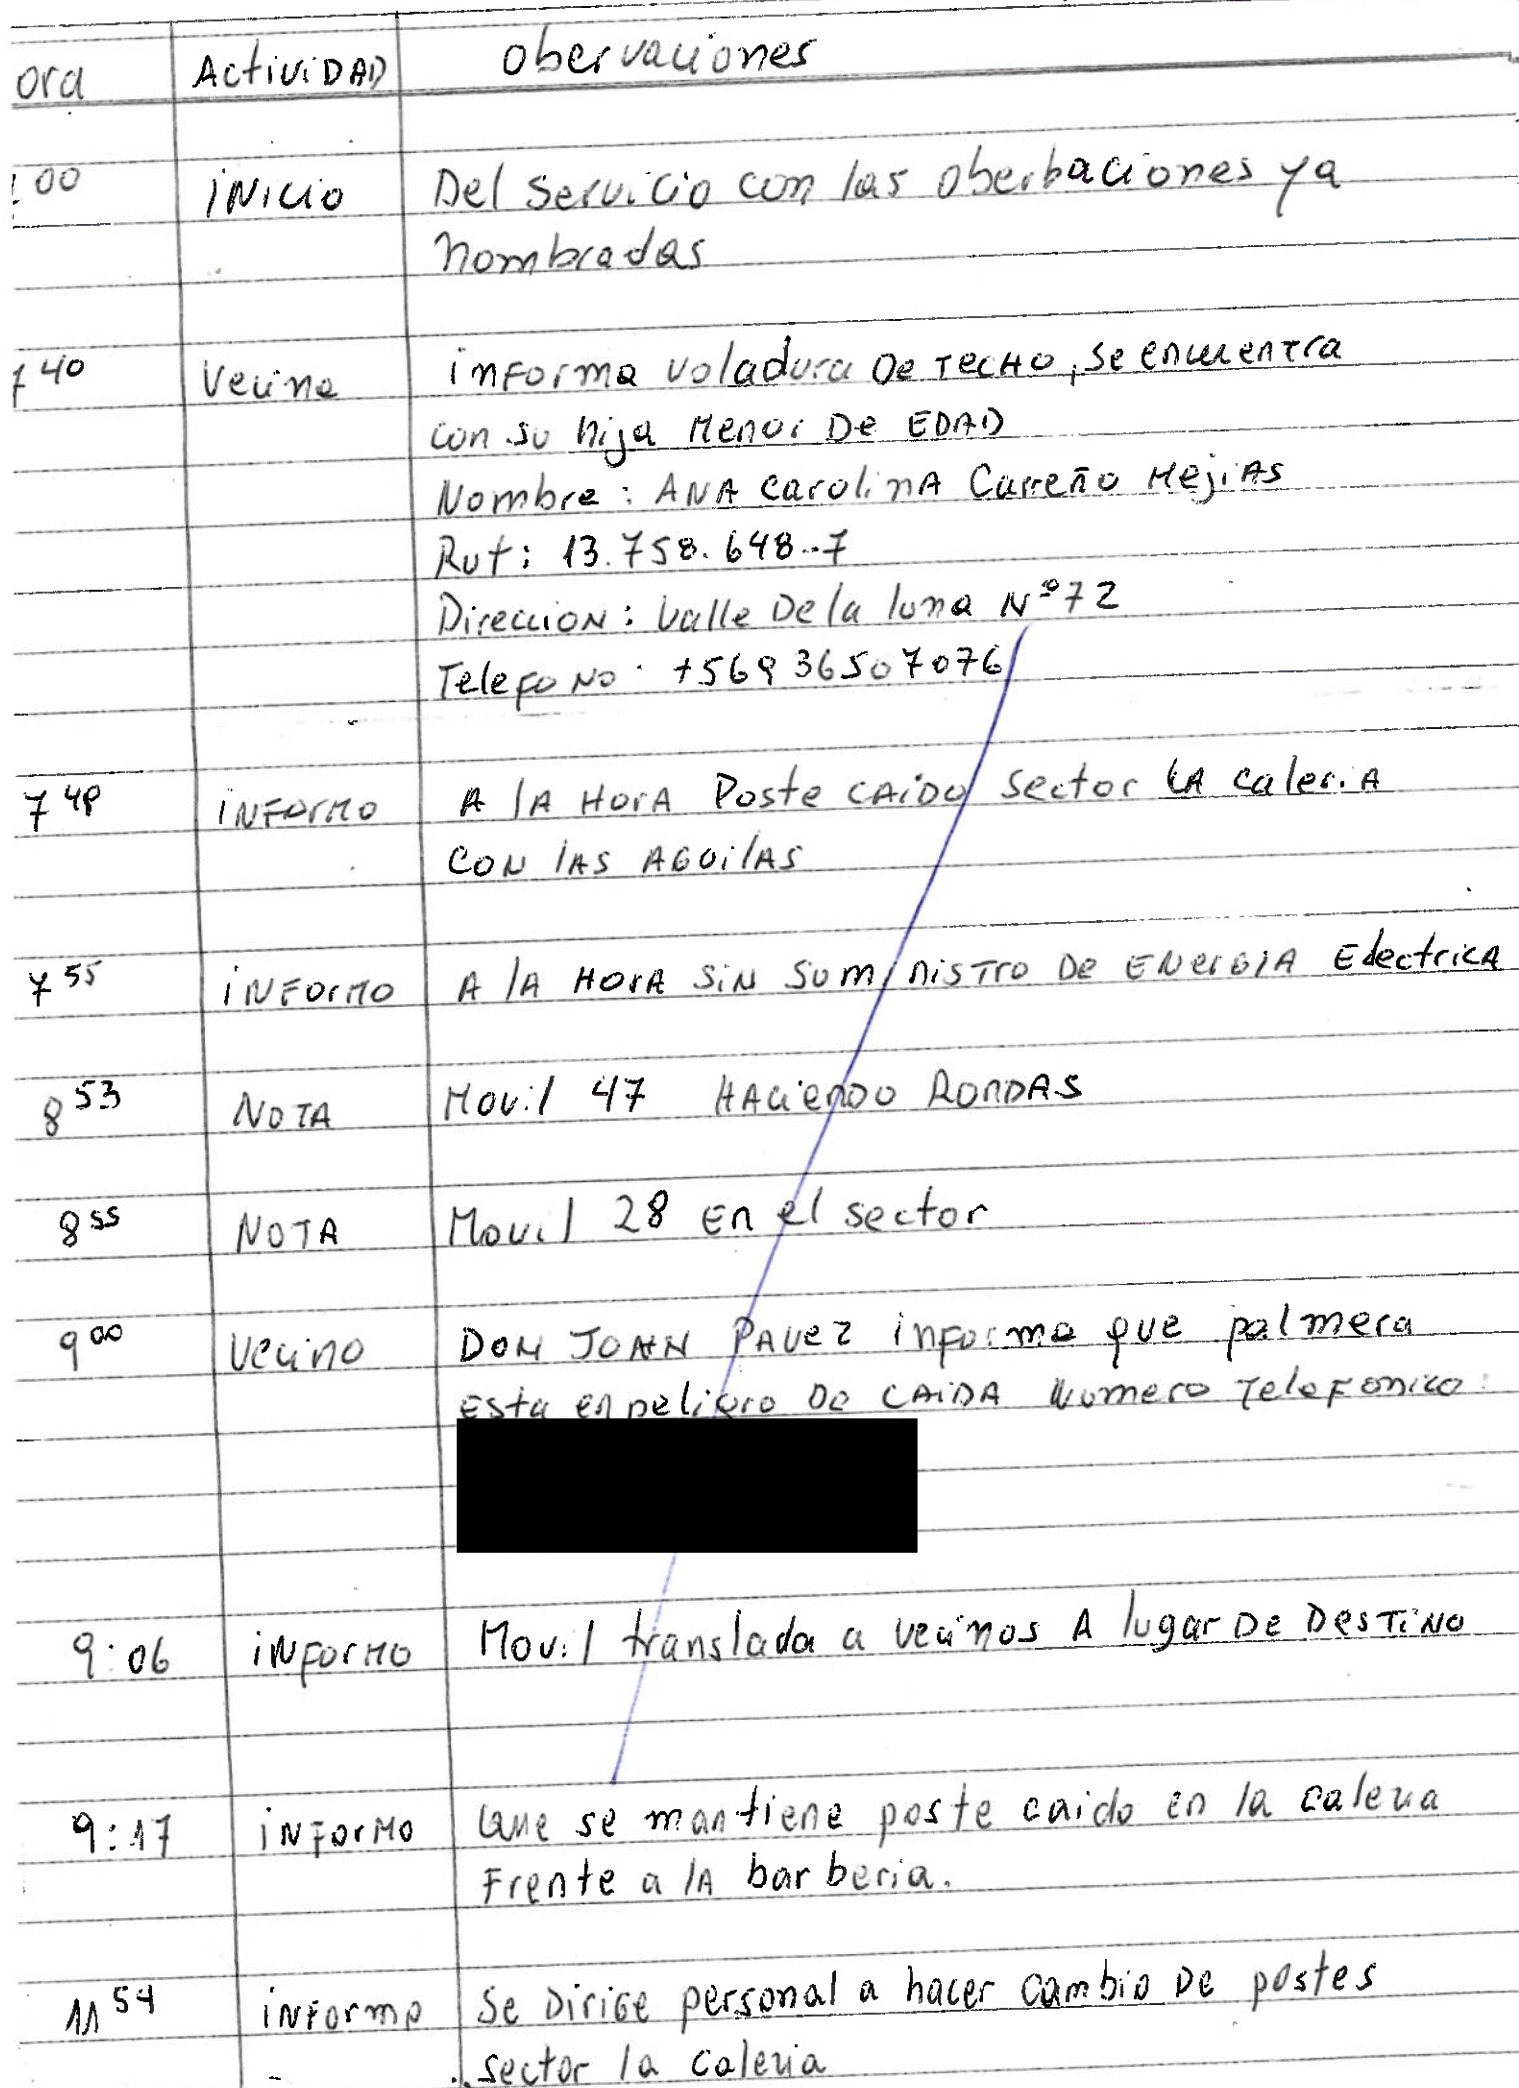 ora Actividad obervaciones
:00 inicio Del servicio con las oberbaciones ya
nombradas
7 40 Vecina informa voladura De Techo, se encuentra
con su hija Menor De EDAD
Nombre: ANA Carolina Carreño Mejias
Rut: 13.758.648-7
Direccion: Valle De la luna N°72
Telefono: +569 36507076
7 informo A la Hora Poste caido sector la caleria
con las Aguilas
7 55 informo A la Hora sin suministro De Energia Edectrica
8 53 Nota Movil 47 Haciendo Rondas
8 55 Nota Movil 28 En el sector
9 00 Vecino Don John Pavez informa que palmera
Esta en peligro De caida Numero Telefonico:
9:06 informo Movil translada a vecinos A lugar De Destino
9:17 informo Que se mantiene poste caido en la caleria
Frente a la barberia.
11 54 informo Se Dirige personal a hacer cambio De postes
sector la caleria